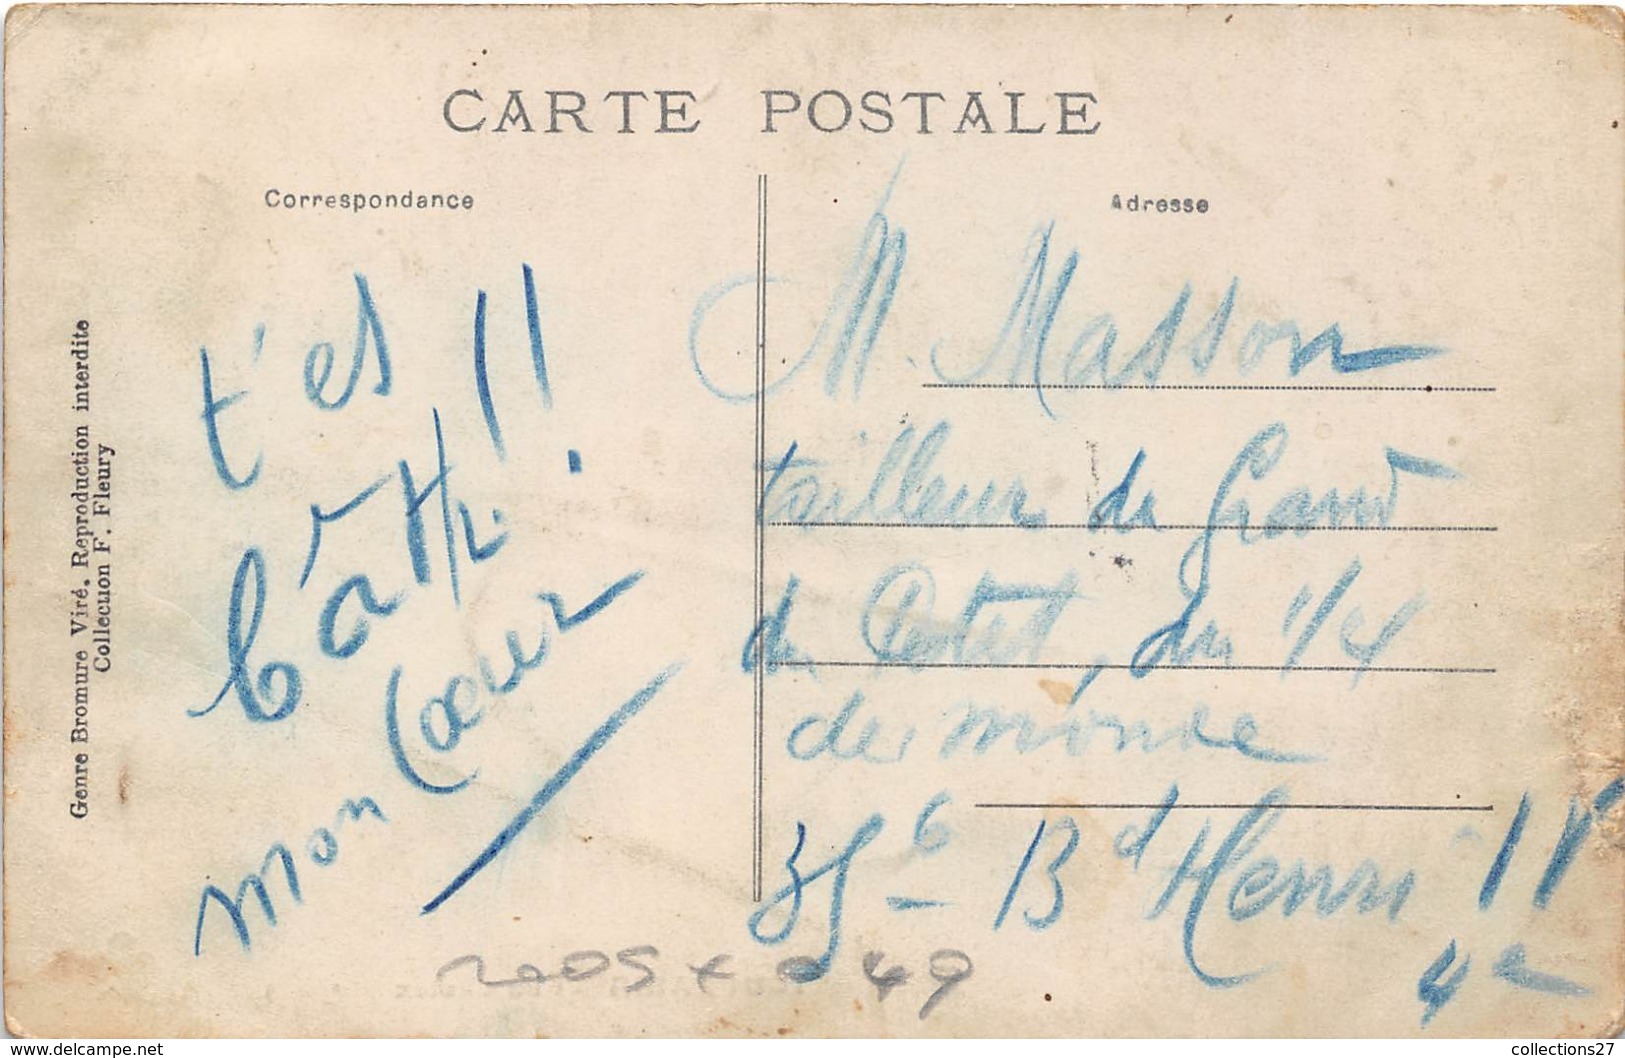 CARTE POSTALE
Correspondance
Adresse
Genre Bromure Viré. Reproduction interdite
Collection F. Fleury
t'es
bath !!
mon Coeur
M. Masson
tailleur de Grand
du 1/4
de monde
35 - Bd Henri IV
4e
49
www.delcampe.net
collections27